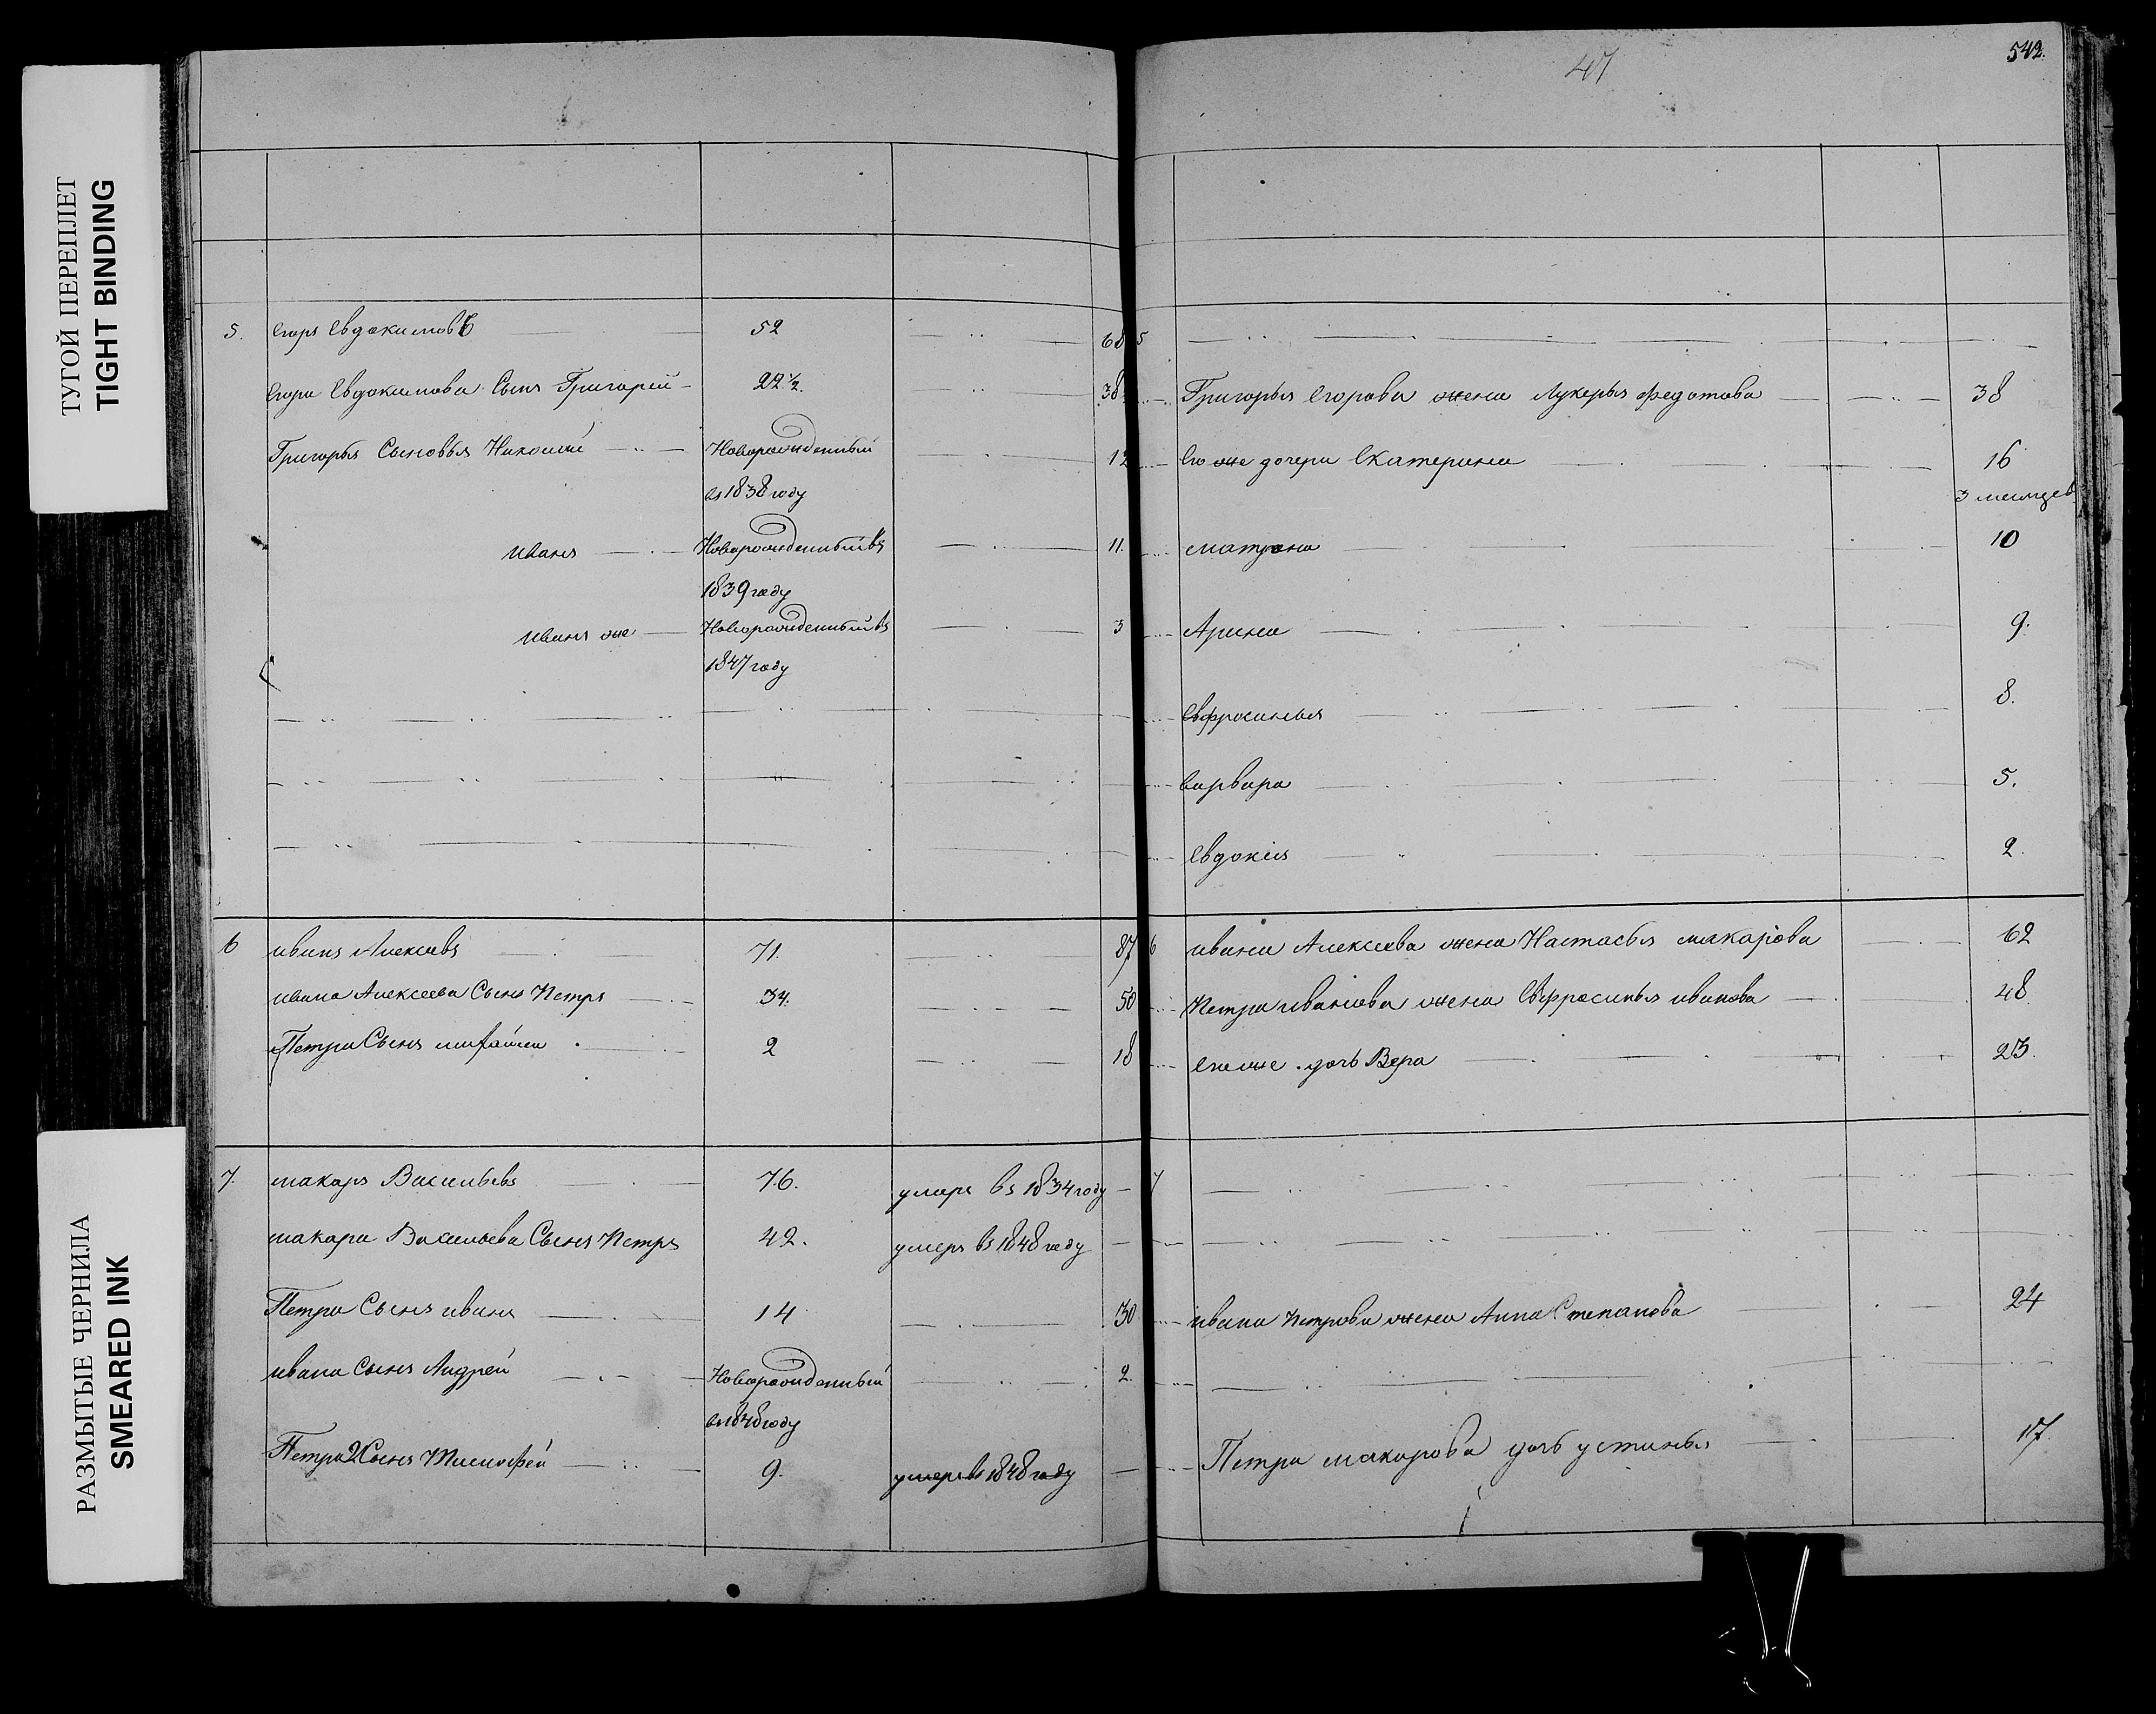 ТУГОЙ ПЕРЕПЛЕТ
TIGHT BINDING
РАЗМЫТЫЕ ЧЕРНИЛА
SMEARED INK
5. Егоръ Евдокимовъ 52 68
Егора Евдокимова Сынъ Григорей 22 ½. 38
Григорья Сыновья Новорожденный 12
въ 1838 году
иванъ Новорожденный въ 11.
1839 году
иванъ же Новорожденный въ 3
1847 году
6 иванъ Алексеевъ 71. 87
ивана Алексеева Сынъ Петръ 34. 50
Петра Сынъ 2 18
7. макаръ Васильевъ 76. умеръ въ 1834 году
макара Васильева Сынъ Петръ 42. умеръ въ 1848 году
Петра Сынъ иванъ 14 30
ивана Сынъ Андрей Новорожденный 2.
въ 1848 году
Петра 2 Сынъ Тимофей 9. умеръ въ 1848 году
47
542.
5
Григорья Егорова жена Лукерья федотова 38
Его же дочери Екатерина 16
3 месяцев
матрена 10
Арина 9.
Евфросинья 8.
варвара 5.
Евдокия 2.
6 ивана Алексеева жена Настасья макарова 62
Петра иванова жена Евфросинья иванова 48
Его же дочь Вера 23.
7
ивана петрова жена Анна Степанова 24
Петра макарова дочь устинья 17.